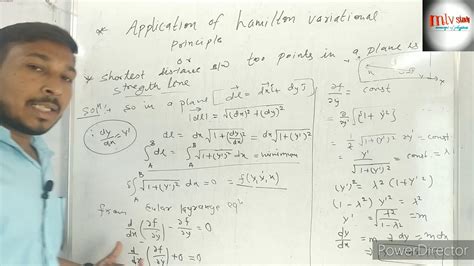 * Application of hamilton variational
Principle
or
* shortest distance b/w two points in a plane is
stregth line
Solⁿ: so in a plane [d\vec{l} = \vec{i}dx + dy\vec{j}]
|d\vec{l}| = √(dx)²+(dy)²
∵ dy/dx = y'
dl = dx√1+(dy/dx)² = dx√1+(y')²
∫_A^B dl = ∫_A^B √1+(y')² dx = minimum
δ∫_A^B √1+(y')² dx = 0 = f(y, y', x)
from Eular lagrange eqⁿ
d/dx (∂f/∂y') - ∂f/∂y = 0
d/dx (∂f/∂y') + 0 = 0
∂f/∂y' = const
= 1/2 1/√1+(y')² 2y' = const
y'/√1+(y')² = const = λ
(y')² = λ²(1+y'²)
(1-λ²)y'² = λ²
y' = √λ²/1-λ² = m
dy/dx = m ⇒ dy = mdx
mlv study
PowerDirector